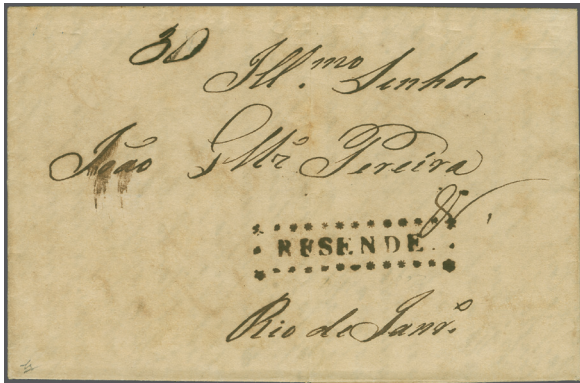 30
Ill.mo Senhor
João G Mr.ª Pereira
RESENDE
Rio de Janr.º